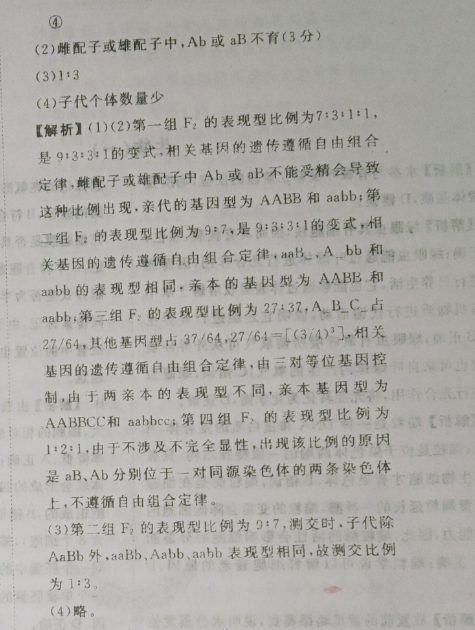 ④
(2)雌配子或雄配子中,Ab 或 aB 不育(3 分)
(3)1∶3
(4)子代个体数量少
【解析】(1)(2)第一组 F₂ 的表现型比例为7∶3∶1∶1,
是 9∶3∶3∶1的变式,相关基因的遗传遵循自由组合
定律,雌配子或雄配子中 Ab 或 aB 不能受精会导致
这种比例出现,亲代的基因型为 AABB 和 aabb;第
二组 F₂ 的表现型比例为 9∶7,是 9∶3∶3∶1的变式,相
关基因的遗传遵循自由组合定律,aaB_、A_bb 和
aabb 的表现型相同,亲本的基因型为 AABB 和
aabb;第三组 F₂ 的表现型比例为 27∶37,A_B_C_占
27/64,其他基因型占 37/64,27/64=[(3/4)³],相关
基因的遗传遵循自由组合定律,由三对等位基因控
制,由于两亲本的表现型不同,亲本基因型为
AABBCC和 aabbcc;第四组 F₂ 的表现型比例为
1∶2∶1,由于不涉及不完全显性,出现该比例的原因
是 aB、Ab 分别位于一对同源染色体的两条染色体
上,不遵循自由组合定律。
(3)第二组 F₂ 的表现型比例为 9∶7,测交时,子代除
AaBb 外,aaBb、Aabb、aabb 表现型相同,故测交比例
为 1∶3。
(4)略。